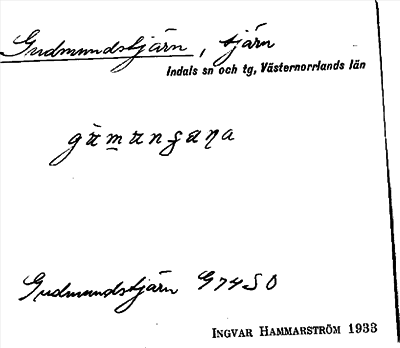 Gudmundstjärn, tjärn
Indals sn och tg, Västernorrlands län
Gudmundstjärn G 74 SO
INGVAR HAMMARSTRÖM 1933